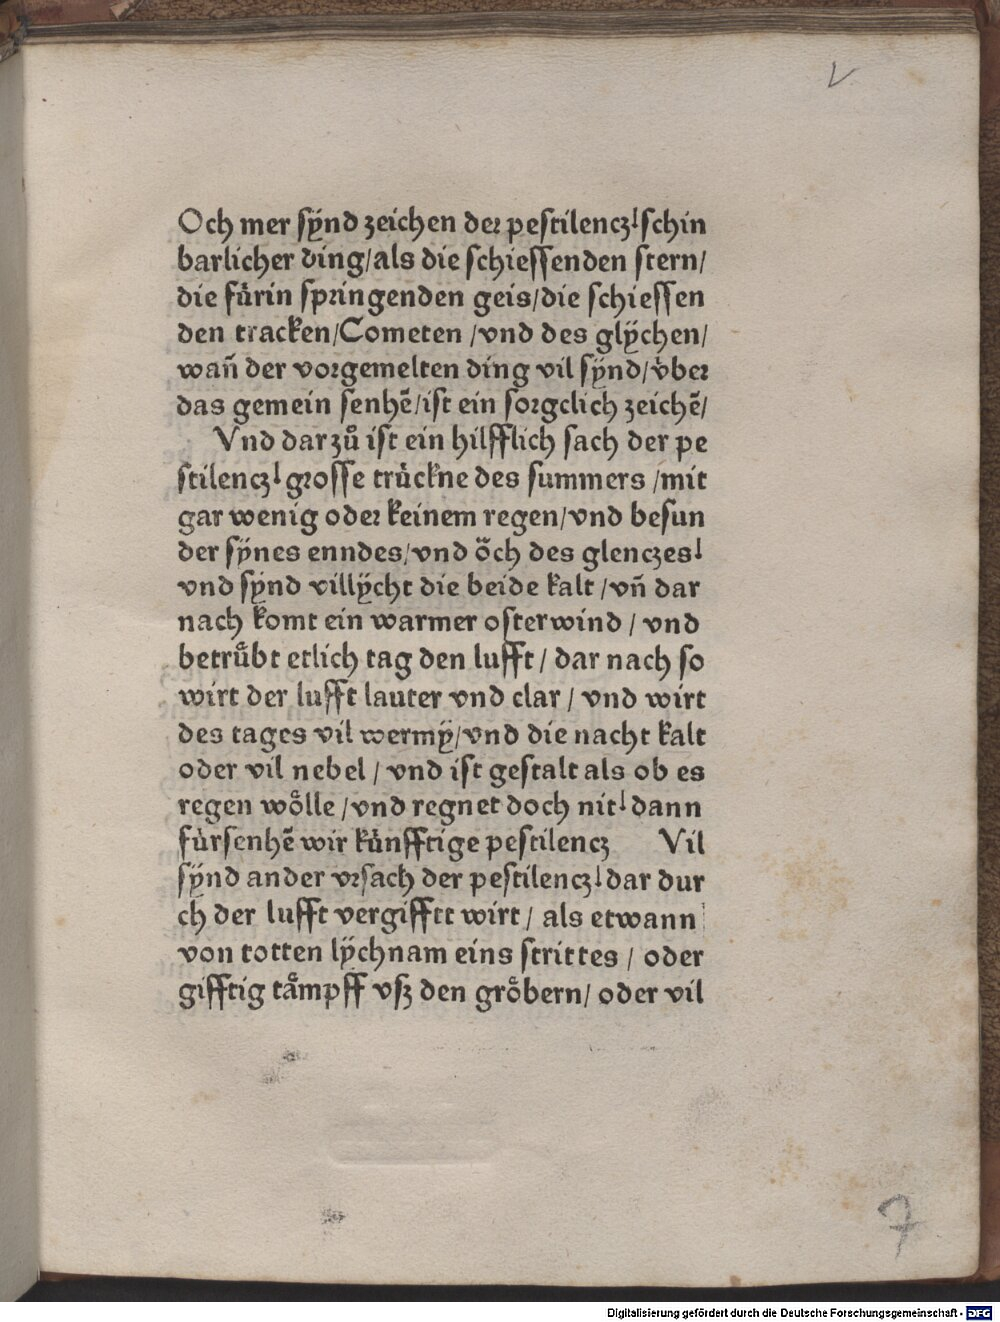 V
Och mer sÿnd zeichen der pestilencz/schin
barlicher ding/als die schiessenden stern/
die fu̇rin springenden geis/die schiessen
den tracken/Cometen /vnd des glÿchen/
wan̄ der vorgemelten ding vil sÿnd/v̇ber
das gemein senhē/ist ein sorgclich zeichē/
Vnd darzů ist ein hilfflich sach der pe
stilencz/grosse tru̇ckne des summers /mit
gar wenig oder keinem regen/vnd besun
der sÿnes enndes/vnd öch des glenczes/
vnd sÿnd villÿcht die beide kalt/vn̄ dar
nach komt ein warmer osterwind/ vnd
betrůbt etlich tag den lufft/ dar nach so
wirt der lufft lauter vnd clar/ vnd wirt
des tages vil wermÿ/vnd die nacht kalt
oder vil nebel/ vnd ist gestalt als ob es
regen wo̊lle /vnd regnet doch nit/dann
fu̇rsenhē wir ku̇nfftige pestilencz Vil
sÿnd ander vrsach der pestilencz/dar dur
ch der lufft vergifftt wirt/ als etwann
von totten lÿchnam eins strittes/ oder
gifftig tåmpff vsz den gro̊bern/ oder vil
7
Digitalisierung gefördert durch die Deutsche Forschungsgemeinschaft - DFG